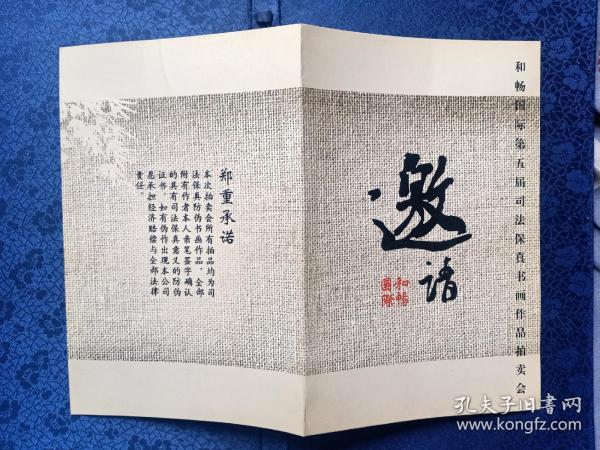 和畅国际第五届司法保真书画作品拍卖会
邀请
和畅
國際
郑重承诺
本次拍卖会所有拍品均为司
法保真防伪书画作品，全部
附有作者本人亲笔签字确认
的具有司法保真意义的防伪
证书，如有伪作出现本公司
愿承担经济赔偿与全部法律
责任。
孔夫子旧书网
www.kongfz.com